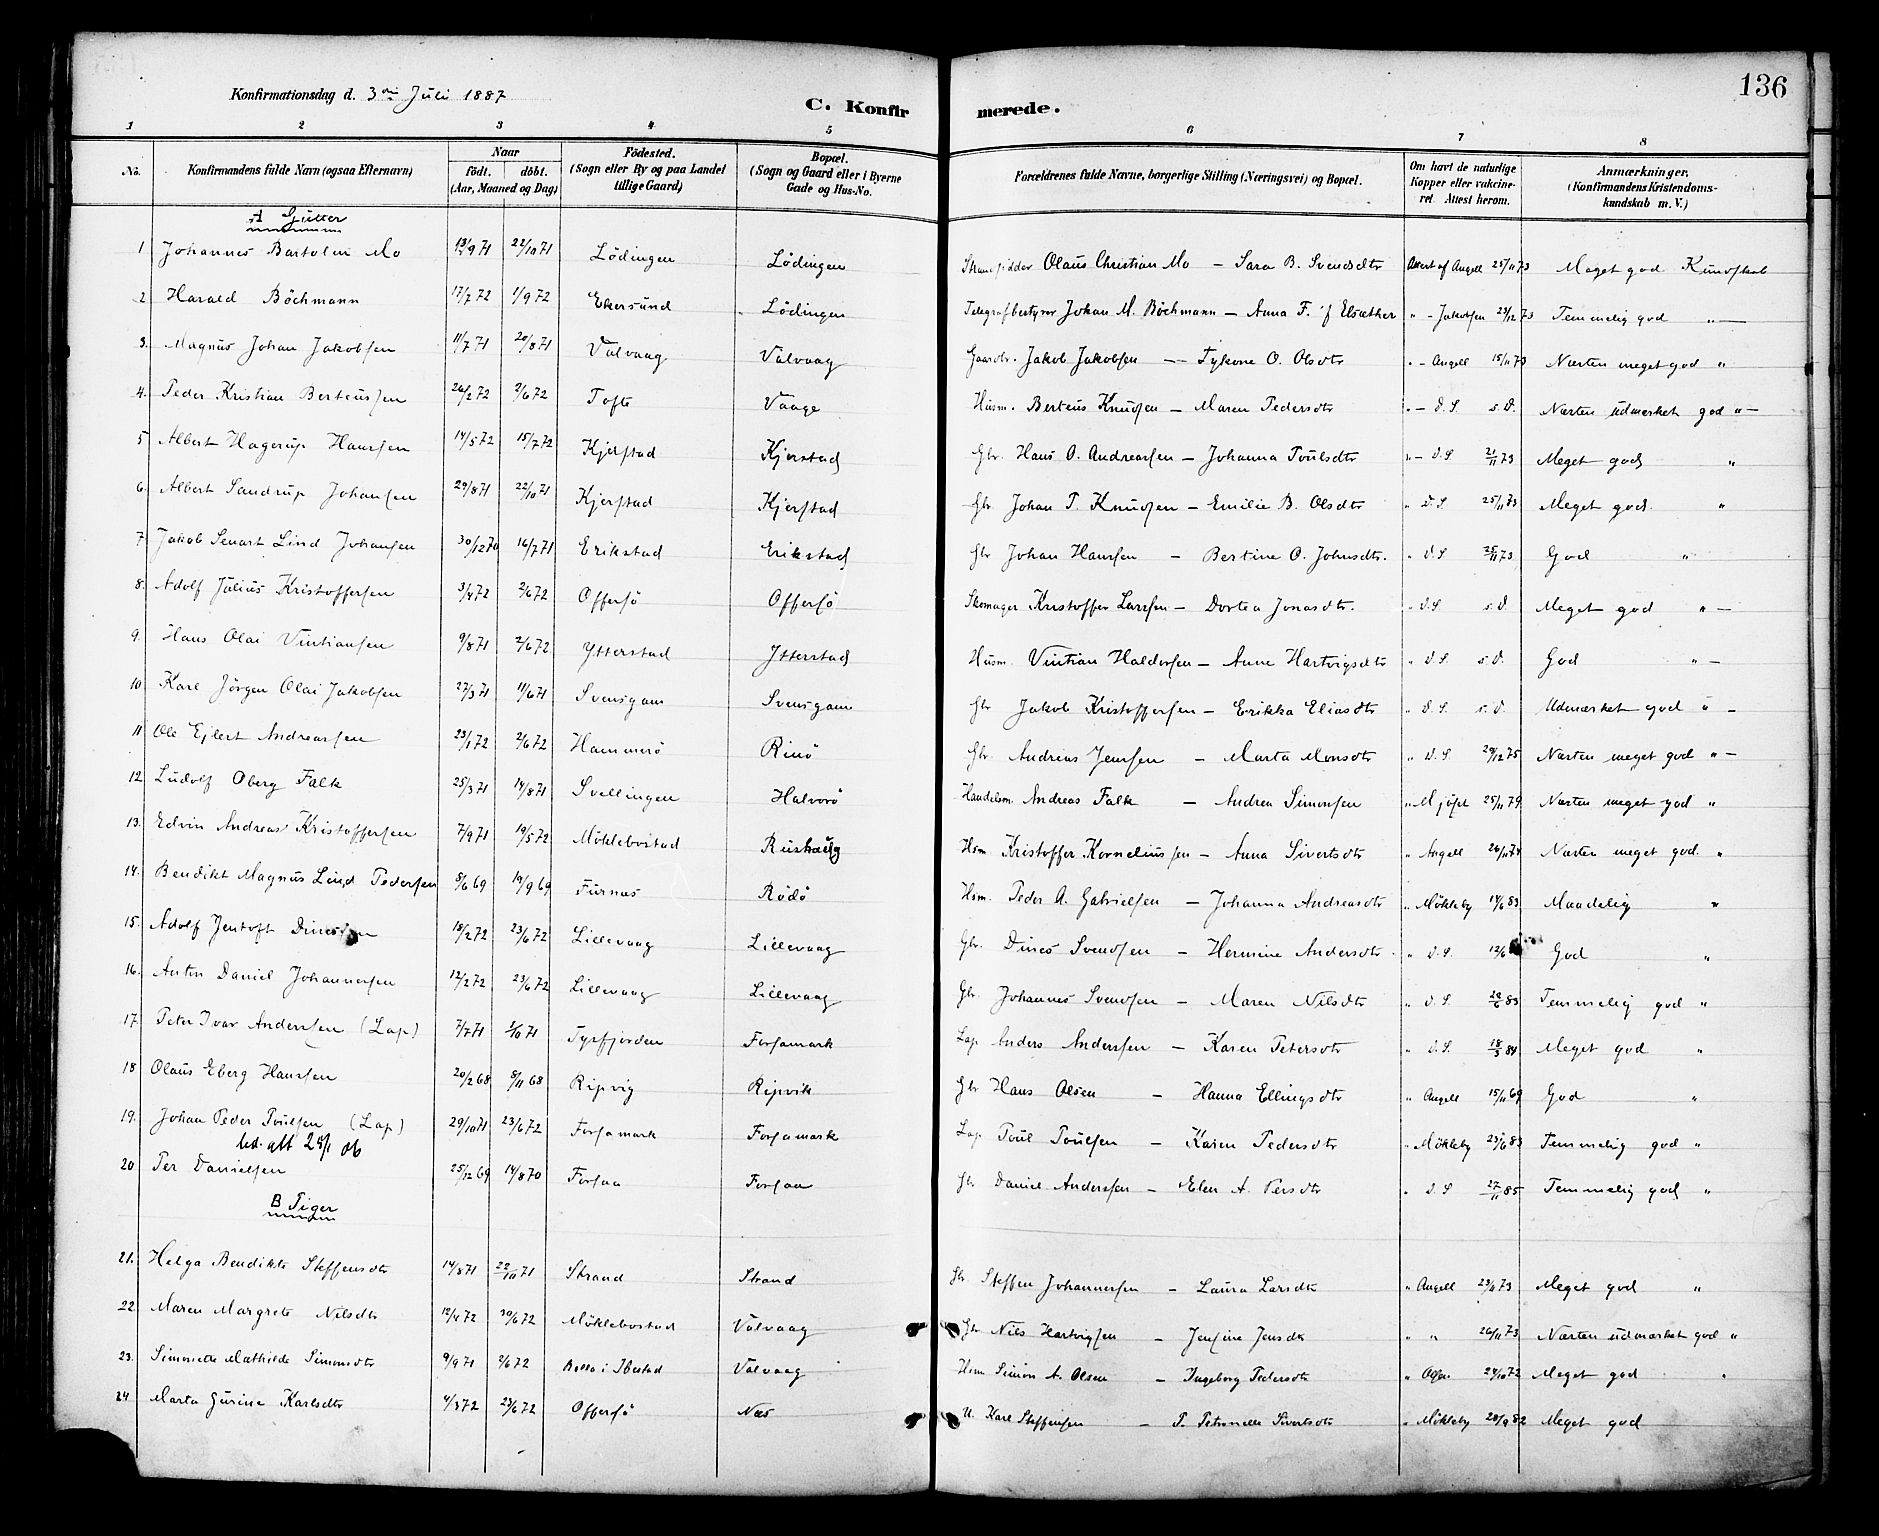 136
Konfirmationsdag d. 3die Juli 1887
C. Konfirmerede.
1 2 3 4 5 6 7 8
No. Konfirmandens fulde Navn (ogsaa Efternavn) Naar födt. döbt. (Aar, Maaned og Dag) Födested. (Sogn eller By og paa Landet tillige Gaard) Bopæl. (Sogn og Gaard eller i Byerne Gade og Hus-No. Forældrenes fulde Navne, borgerlige Stilling (Næringsvei) og Bopæl. Om havt de naturlige Kopper eller vakcineret. Attest herom. Anmærkninger. (Konfirmandens Kristendomskundskab m. V.)
A Gutter
1 Johannes Bartolen Mo 13/9 71 22/10 71 Lödingen Lödingen Strandsidder Olaus Christian Mo – Sara B. Svendsdtr Attest af Angell 25/11 73 Meget god Kundskab
2. Harald Böchmann 17/7 72 1/9 72 Ekersund Lödingen Telegrafbestyrer Johan M. Böchmann – Anna F. f Elsæther " – Jakobsen 23/12 73 Temmelig god " –
3. Magnus Johan Jakobsen 11/7 71 20/8 71 Valvaag Valvaag Gaardbr. Jakob Jakobsen – O. Olsdtr " – Angell 15/11 73 Næsten meget god "
4. Peder Kristian Berteussen 26/2 72 2/6 72 Tofte Vaage Husm. Berteus Knudsen – Maren Pedersdtr " – d. S. s. D. Næsten udmærket god " –
5 Albert Hagerup Hanssen 14/5 72 15/7 72 Kjerstad Kjerstad Gbr. Hans O. Andreassen – Johanna Poulsdtr " – d. S. 21/11 73 Meget god "
6. Albert Sandrup Johansen 29/8 71 22/10 71 Kjerstad Kjerstad Gbr. Johan P. Knudsen – Emilie B. Olsdtr " d. S. 25/11 83 Meget god. "
7. Jakob Senart Lind Johansen 30/12 70 16/7 71 Erikstad Erikstad Gbr Johan Hansen – Bertine O. Johnsdtr. " d. S. 25/11 73 God "
8. Adolf Julius Kristoffersen 3/4 72 2/6 72 Offersö Offersö Skomager Kristoffer Larssen – Dortea Jonasdtr. " d. S s. D. Meget god " –
9. Hans Olai Vintiansen 9/8 71 2/6 72 Ytterstad Ytterstad Husm. Vintian Haldorsen – Anne Hartvigsdtr " d. S. s. D. God " –
10. Karl Jörgen Olai Jakobsen 27/3 71 11/6 71 Svensgam Svensgam Gbr Jakob Kristoffersen – Erikka Eliasdtr " d. S. s. D. Udmærket god " –
11 Ole Ejlert Andreassen 23/1 72 2/6 72 Hammerö Rinö Gbr. Andreas Jenssen – Marta Monsdtr " d. S. 29/12 75 Næsten meget god " –
12. Ludolf Oberg Falk 25/3 71 14/8 71 Svellingen Halvorö Handelsm. Andreas Falk – Andrea Simonsen " 25/11 79 Næsten meget god "
13. Edvin Andreas Kristoffersen 7/9 71 19/5 72 Möklebostad Rushaug Hsm Kristoffer Korneliussen – Anna Sivertsdtr " Angell 26/11 74 Næsten meget god. "
14. Bendikt Magnus Lind Pedersen 5/6 69 19/9 69 Furnes Rödö Hsm. Peder A. Gabrielsen – Johanna Andreasdtr " Mökleby 14/6 83 Maadelig "
15. Adolf Jentoft Dinessen 18/2 72 23/6 72 Lillevaag Lillevaag Gbr. Dines Svendsen – Hermine Andersdtr. " d. S. 12/6 God "
16. Anton Daniel Johannessen 12/2 72 23/6 72 Lillevaag Lillevaag Gbr. Johannes Svendsen – Maren Nilsdtr " d. S. 22/6 83 Temmelig god "
17. Peter Ivar Anderssen (Lap) 7/7 71 1/10 71 Tysfjorden Forsamark Lap Anders Anderssen – Karen Petersdtr " d. S. 18/5 84 Meget god "
18 Olaus Eberg Hanssen 20/2 68 8/11 68 Ripvig Ripvik Gbr Hans Olsen – Hanna Ellingsdtr " Angell 15/11 69 God "
19. Johan Peder Poulsen (Lap) 29/10 71 23/6 72 Forsamark Forsamark Lap Poul Poulsen – Karen Pedersdtr " Mökleby 23/6 83 Temmelig god "
ud. att 28/1 06
20 Per Danielsen 25/12 69 14/8 70 Forsaa Forsaa Gbr Daniel Anderssen – Elen A. Persdtr " d. S 27/11 85 Temmelig god "
B Piger
21. Helga Bendikte Steffensdtr 14/8 71 22/10 71 Strand Strand Gbr Steffen Johannessen – Laura Larsdtr " Angell 23/11 73 Meget god "
22. Maren Margrete Nilsdtr 12/4 72 30/6 72 Möklebostad Valvaag Gbr Nils Hartvigsen – Jensine Jensdtr " " 26/11 73 Næsten udmærket god "
23. Simmette Mathilde Simonsdtr 9/9 71 2/6 72 Bolla i Ibestad Valvaag Hsm Simon A. Olsen – Ingeborg Pedersdtr " 24/10 72 Meget god "
24 Marta Gurine Karlsdtr 4/3 72 23/6 72 Offersö Næs U. Karl Steffensen – P. Petronelle Sivertsdtr " Mökleby 28/9 82 Meget god